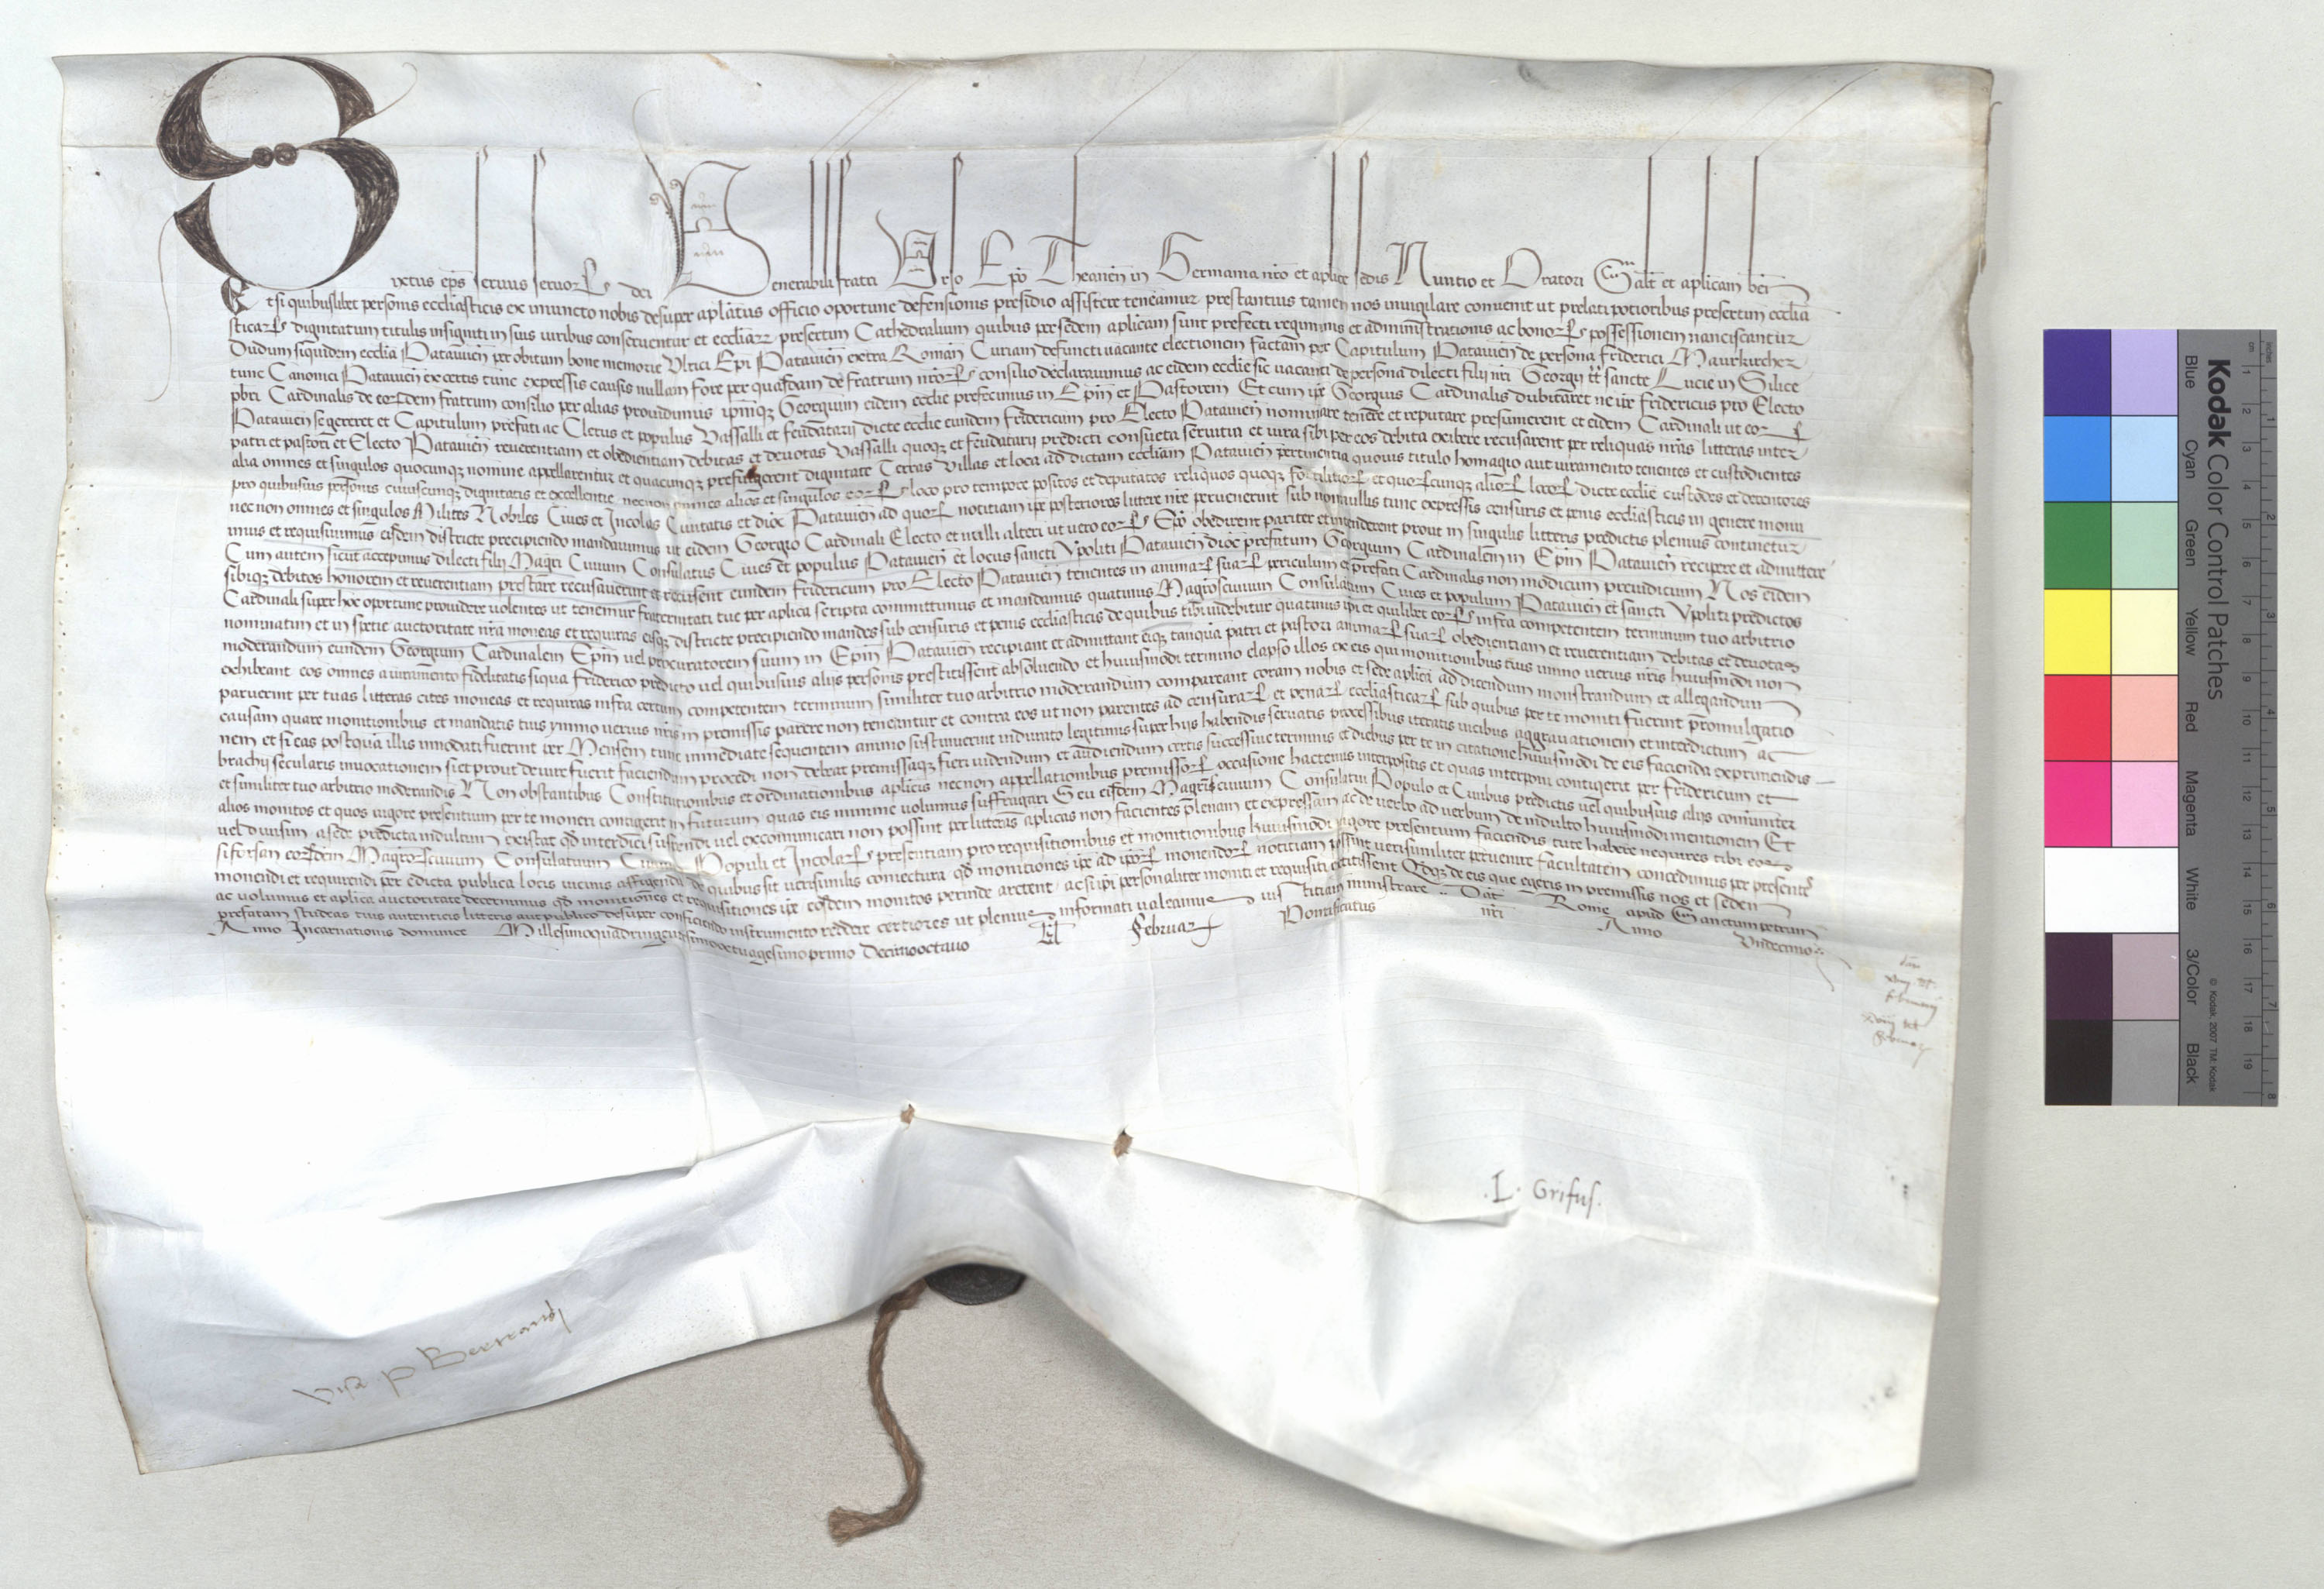 Sixtus eps seruus seruoꝝ dei Venerabili fratri Urso Epo Theanen in Germania nro et aplice sedis Nuntio et Oratori Salt et aplicam ben
Etsi quibuslibet personis ecclesiasticis ex iniuncto nobis desuper aplatus officio oportune defensionis presidio assistere teneamur prestantius tamen nos inuigilare conuenit ut prelati potioribus presertim ecclia
sticaꝝ dignitatum titulis insigniti in suis iuribus conseruentur et eccliaꝝ presertim Cathedralium quibus per sedem aplicam sunt prefecti regiminis et administrationis ac bonoꝝ possessionem nanciscantur
Dudum siquidem ecclia Patauien per obitum bone memorie Vlrici Epi Patauien extra Roman Curiam defuncti uacante electionem factam per Capitulum Patauien de persona Friderici Maurkircher
tunc Canonici Patauien ex certis tunc expressis causis nullam fore per quasdam de fratrum nroꝝ consilio declarauimus ac eidem ecclie sic uacanti de persona dilecti filij nri Georgij tt sancte Lucie in Silice
pbri Cardinalis de eorundem fratrum consilio per alias prouidimus ipmqꝫ Georgium eidem ecclie prefecimus in Epm et Pastorem Et cum ipe Georgius Cardinalis dubitaret ne ipe Fridericus pro Electo
Patauien se gereret et Capitulum prefati ac Clerus et populus Vassalli et feudatarij dicte ecclie eundem Fridericum pro Electo Patauien nominare tenere et reputare presumerent et eidem Cardinali ut eoꝝ
patri et pastori et Electo Patauien reuerentiam et obedientiam debitas et deuotas Vassalli quoqꝫ et feudatarij predicti consueta seruitia et iura sibi per eos debita exibere recusarent per reliquas nras litteras inter
alia omnes et singulos quocunqꝫ nomine appellarentur et quacunqꝫ prefulgerent dignitate Terras Villas et loca ad dictam eccliam Patauien pertinentia quouis titulo homagio aut iuramento tenentes et custodientes
pro quibusuis personis cuiuscunqꝫ dignitatis et excellentie necnon omnes alios et singulos eoꝝ loco pro tempore positos et deputatos reliquos quoqꝫ fortalitioꝝ et quoꝝcunqꝫ alioꝝ locoꝝ dicte ecclie custodes et detentores
nec non omnes et singulos Milites Nobiles Ciues et Incolas Ciuitatis et dioc Patauien ad quoꝝ notitiam ipe posteriores littere nre peruenerint sub nonnullis tunc expressis censuris et penis ecclesiasticis in genere monui
mus et requisiuimus eisdem districte precipiendo mandauimus ut eidem Georgio Cardinali Electo et nulli alteri ut uero eoꝝ Epo obedirent pariter et intenderent prout in singulis litteris predictis plenius continetur
Cum autem sicut accepimus dilecti filij Magri Ciuium Consulatus Ciues et populus Patauien et locus sancti Ypoliti Patauien dioc prefatum Georgium Cardinalem in Epm Patauien recipere et admittere
sibiqꝫ debitos honorem et reuerentiam prestare recusauerint et recusent eundem Fridericum pro Electo Patauien tenentes in animaꝝ suaꝝ periculum et prefati Cardinalis non modicum preiudicium Nos eidem
Cardinali super hoc oportune prouidere uolentes ut tenemur fraternitati tue per aplica scripta committimus et mandamus quatinus Magrosciuium Consulatum Ciues et populum Patauien et sancti Ypoliti predictos
nominatim et in specie auctoritate nra moneas et requiras eisqꝫ districte precipiendo mandes sub censuris et penis ecclesiasticis de quibus tibi uidebitur quatinus ipi et quilibet eoꝝ infra competentem terminum tuo arbitrio
moderandum eundem Georgium Cardinalem Epm uel procuratorem suum in Epm Patauien recipiant et admittant eiqꝫ tanqua patri et pastori animaꝝ suaꝝ obedientiam et reuerentiam debitas et deuotas
exhibeant eos omnes a iuramento fidelitatis siqua Friderico predicto uel quibusuis alijs personis prestitissent absoluendo et huiusmodi termino elapso illos ex eis qui monitionibus tuis immo uerius nris huiusmodi non
paruerint per tuas litteras cites moneas et requiras infra certum competentem terminum similiter tuo arbitrio moderandum compareant coram nobis et sede aplica ad dicendum monstrandum et allegandum
causam quare monitionibus et mandatis tuis ymmo uerius nris in premissis parere non teneantur et contra eos ut non parentes ad censuraꝝ et penaꝝ ecclesiasticaꝝ sub quibus per te moniti fuerint promulgatio
nem et si eas postqua illis innodati fuerint per Mensem tunc immediate sequentem animo sustinuerint indurato legitimis super hijs habendis seruatis processibus iteratis uicibus aggrauationem et interdictum ac
brachij secularis inuocationem sicet prout de iure fuerit faciendum procedi non debeat premissaqꝫ fieri uidendum et audiendum certis successiue terminis et diebus per te in citatione huiusmodi de eis facienda exprimendis
et similiter tuo arbitrio moderandis Non obstantibus Constitutionibus et ordinationibus aplicis necnon appellationibus premissoꝝ occasione hactenus interpositis et quas interponi contigerit per Fridericum et
alios monitos et quos uigore presentium per te moneri contigerit in futurum quas eis minime uolumus suffragari Seu eisdem Magrisciuium Consulatui Populo et Ciuibus predictis uel quibusuis alijs comuniter
uel diuisim a sede predicta indultum existat qd interdici suspendi uel excommunicari non possint per litteras aplicas non facientes plenam et expressam ac de uerbo ad uerbum de indulto huiusmodi mentionem Et
si forsan eorundem Magroꝝciuium Consulatuum Ciuium Populi et Incolaꝝ presentiam pro requisitionibus et monitionibus huiusmodi uigore presentium faciendis tute habere nequires tibi eos
monendi et requirendi per edicta publica locis uicinis affigenda de quibus sit uerisimilis coniectura qd monitiones ipe ad ipoꝝ monendoꝝ notitiam possint uerisimiliter peruenire facultatem concedimus per presentes
ac uolumus et aplica auctoritate decernimus qd monitiones et requisitiones ipe eosdem monitos perinde arctent ac si ipi personaliter moniti et requisiti extitissent Qdqꝫ de eis que egeris in premissis nos et sedem
prefatam studeas tuis autenticis litteris aut publico desuper conficiendo instrumento reddere certiores ut plenius informati ualeamus iustitiam ministrare Dat Rome apud Sanctumpetrum
Anno Incarnationis dominice Millesimoquadringentesimooctuagesimoprimo Decimooctauo kl Februar Pontificatus nri Anno Undecimo
L. Grifus.
Visa P Bertrandi